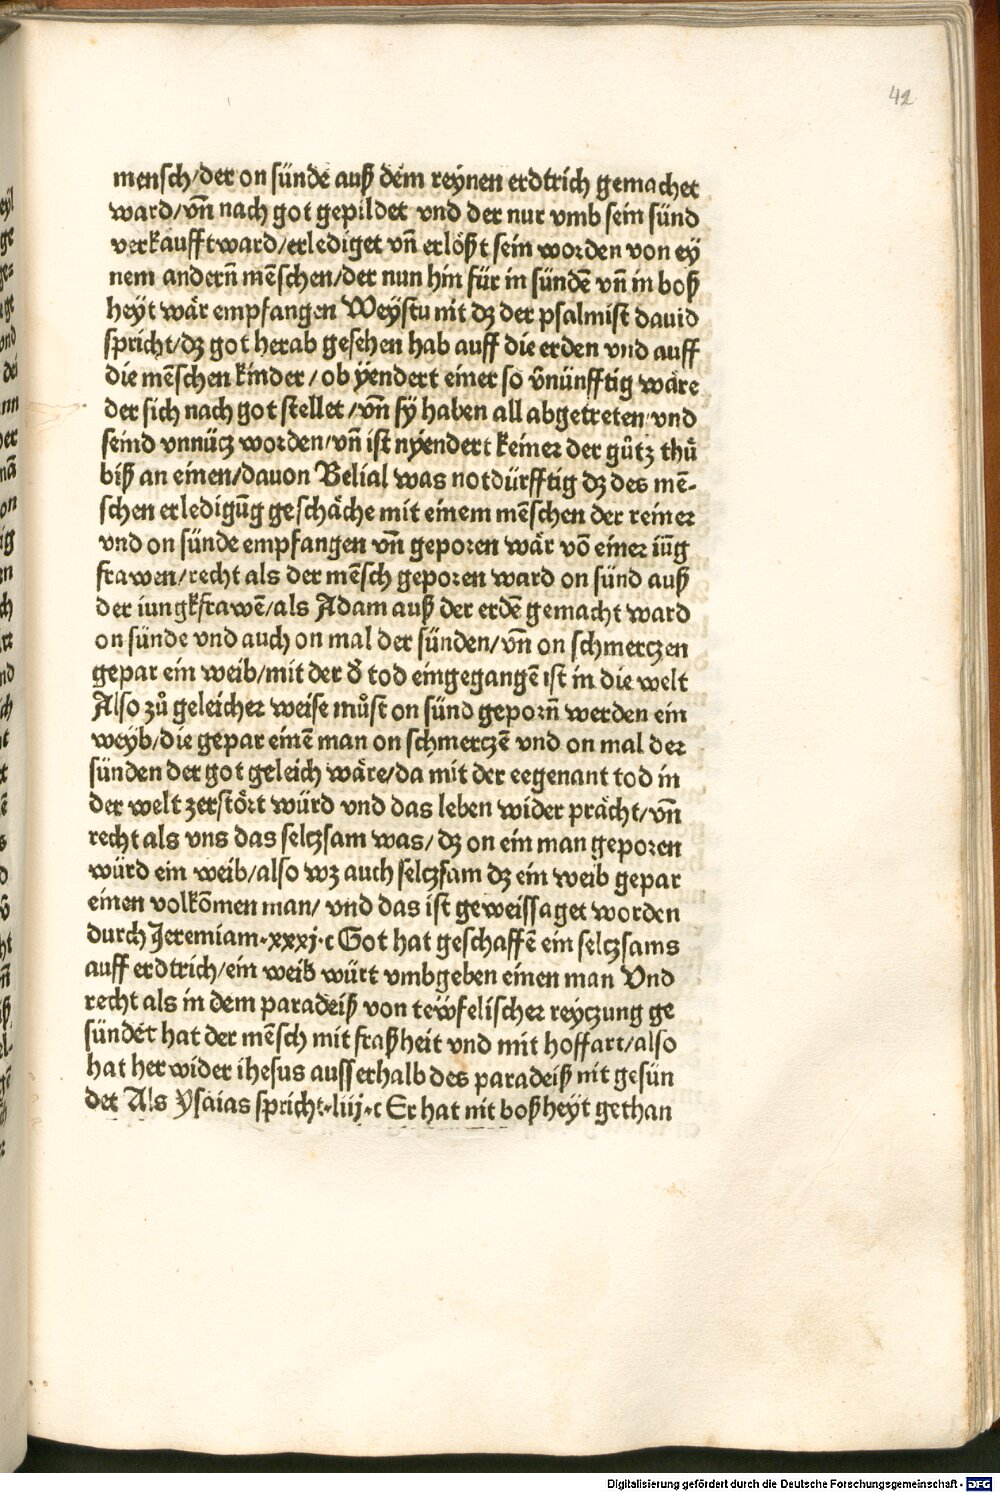 42
mensch/der on sünde auß dem reynen erdtrich gemachet
ward/vñ nach got gepildet vnd der nur vmb sein sünd
verkaufft ward/erlediget vñ erlößt sein worden von ey
nem anderñ mēschen/der nun hin für in sündē vñ in boß
heyt wär empfangen Weystu nit dz der psalmist dauid
spricht/dz got herab gesehen hab auff die erden vnd auff
die mēschen kinder/ob yendert einer so v̄nünfftig wäre
der sich nach got stellet/vñ sy haben all abgetreten vnd
seind vnnücz worden/vñ ist nyendert keiner der gůtz thů
biß an einen/dauon Belial was notdürfftig dz des mē-
schen erledigūg geschäche mit einem mēschen der reiner
vnd on sünde empfangen vñ geporen wär vō einer iūg
frawen/recht als der mēsch geporen ward on sünd auß
der iungkfrawē/als Adam auß der erdē gemacht ward
on sünde vnd auch on mal der sünden/vñ on schmerczen
gepar ein weib/mit der d̄ tod eingegangē ist in die welt
Also zů geleicher weise můst on sünd geporñ werden ein
weyb/die gepar einē man on schmerczē vnd on mal der
sünden der got geleich wäre/da mit der eegenant tod in
der welt zerstört würd vnd das leben wider prächt/vñ
recht als vns das selczsam was/dz on ein man geporen
würd ein weib/also wz auch selczsam dz ein weib gepar
einen volkōmen man/vnd das ist geweissaget worden
durch Jeremiam·xxxj·c Got hat geschaffē ein selczsams
auff erdtrich/ein weib würt vmbgeben einen man Vnd
recht als in dem paradeiß von tewfelischer reyczung ge
sündet hat der mēsch mit fraßheit vnd mit hoffart/also
hat her wider ihesus ausserhalb des paradeiß nit gesün
det Als Ysaias spricht·liij·c Er hat nit boßheyt gethan
Digitalisierung gefördert durch die Deutsche Forschungsgemeinschaft - DFG